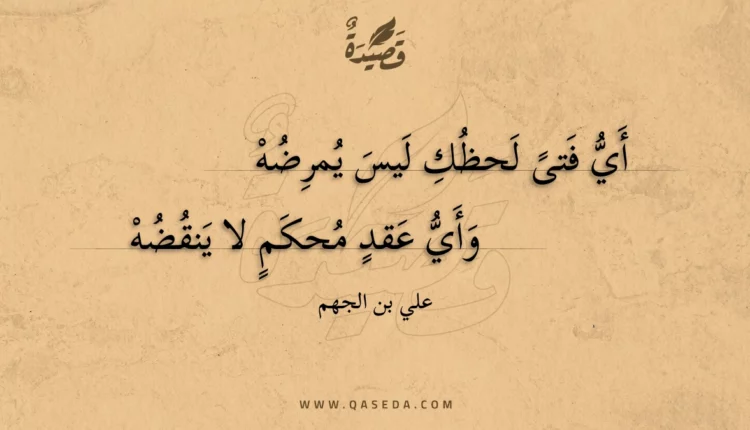 قَصِيْدَةٌ
أَيُّ فَتىً لَحظُكِ لَيسَ يُمرِضُهْ
وَأَيُّ عَقدٍ مُحكَمٍ لا يَنقُضُهْ
علي بن الجهم
WWW.QASEDA.COM